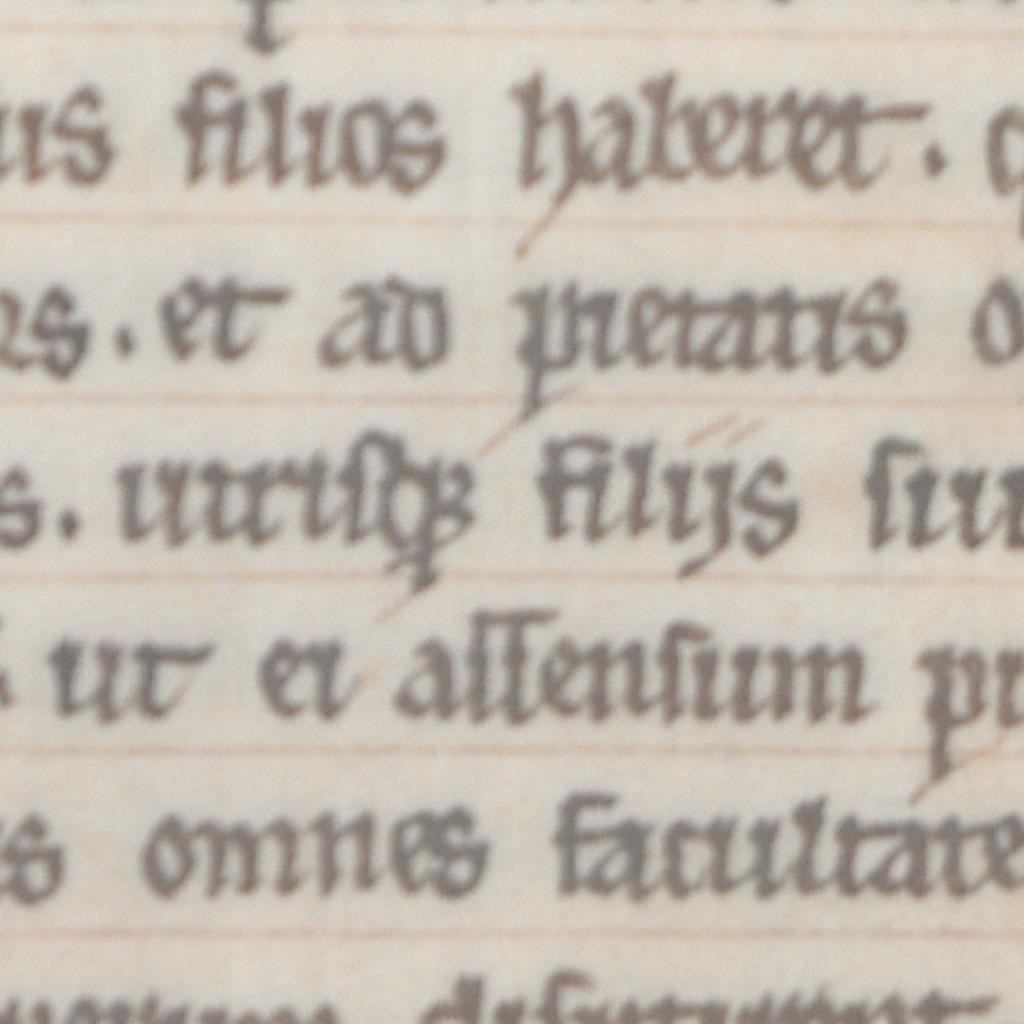 filios haberet.
et ad pietatis
utrisq; filijs
ut ei assensum
omnes facultate